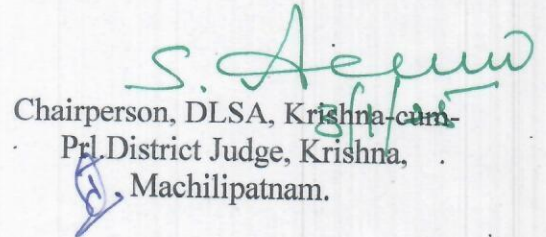 Chairperson, DLSA, Krishna-cum-
Prl.District Judge, Krishna,
Machilipatnam.